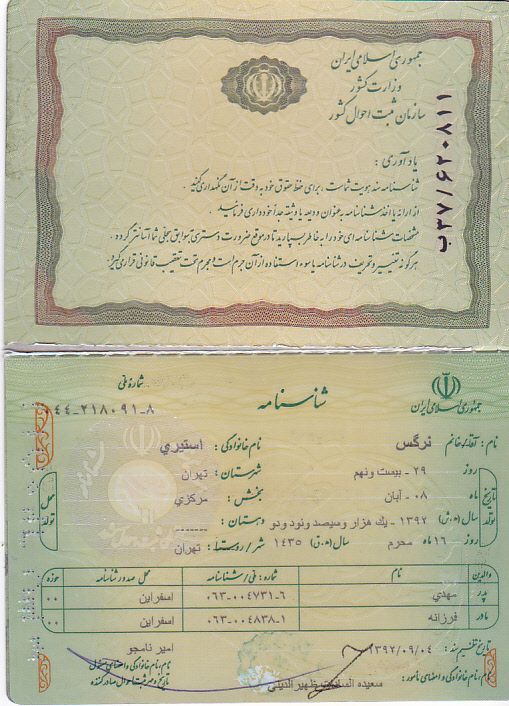 جمهوری اسلامی ایران
وزارت کشور
سازمان ثبت احوال کشور
ب۳۷/۶۲۰۸۱۱
یادآوری :
شناسنامه سند هویت شماست ، برای حفظ حقوق خود به دقت از آن نگهداری کنید .
از ارائه یا اخذ شناسنامه به عنوان ودیعه یا وثیقه جداً خودداری فرمائید .
مشخصات شناسنامه ای خود را به خاطر بسپارید تا در موقع ضرورت دسترسی به سوابق سجلی شما آسانتر گردد .
هرگونه تغییر و تحریف در شناسنامه یا سوء استفاده از آن جرم است و مجرم تحت تعقیب قانونی قرار می گیرد .
جمهوری اسلامی ایران
شناسنامه
شماره ملی
۴۴-۲۱۸۰۹۱-۸
نام : آقا/خانم نرگس نام خانوادگی : استیری
تاریخ تولد
روز ۲۹ - بیست ونهم
ماه ۰۸ - آبان
سال (ه.ش) ۱۳۹۲ - یک هزار وسیصد ونود ودو
روز ۱۶ ماه محرم سال (ه.ق) ۱۴۳۵
محل تولد
شهرستان : تهران
بخش : مرکزی
دهستان : -------
شهر / روستا : تهران
والدین نام شماره : ملی / شناسنامه محل صدور شناسنامه حوزه
پدر مهدی ۰۶۳-۰۰۴۷۳۱-۶ اسفراین ۰۰
مادر فرزانه ۰۶۳-۰۰۴۸۳۸-۱ اسفراین ۰۰
تاریخ تنظیم سند : ۱۳۹۲/۰۹/۰۴
نام ، نام خانوادگی و امضای مأمور : سعیده السادات ظهیر الدینی
امیر نامجو
نام ، نام خانوادگی و امضای مسئول